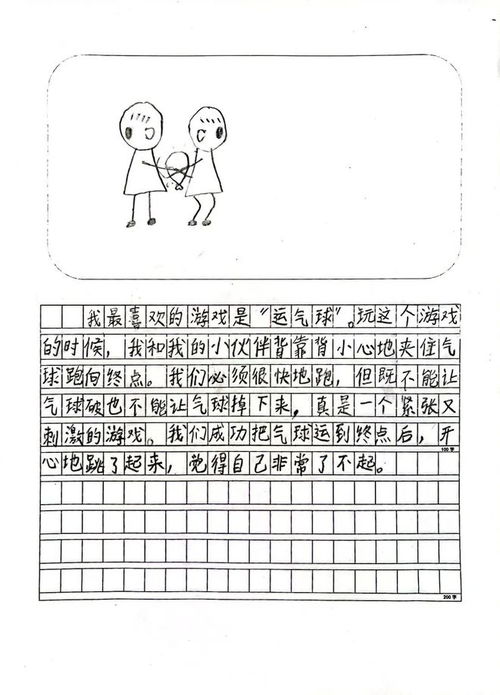 我最喜欢的游戏是“运气球”。玩这个游戏
的时候，我和我的小伙伴背靠背小心地夹住气
球跑向终点。我们必须很快地跑，但既不能让
气球破也不能让气球掉下来，真是一个紧张又
刺激的游戏。我们成功把气球运到终点后，开
100字
心地跳了起来，觉得自己非常了不起。
200字